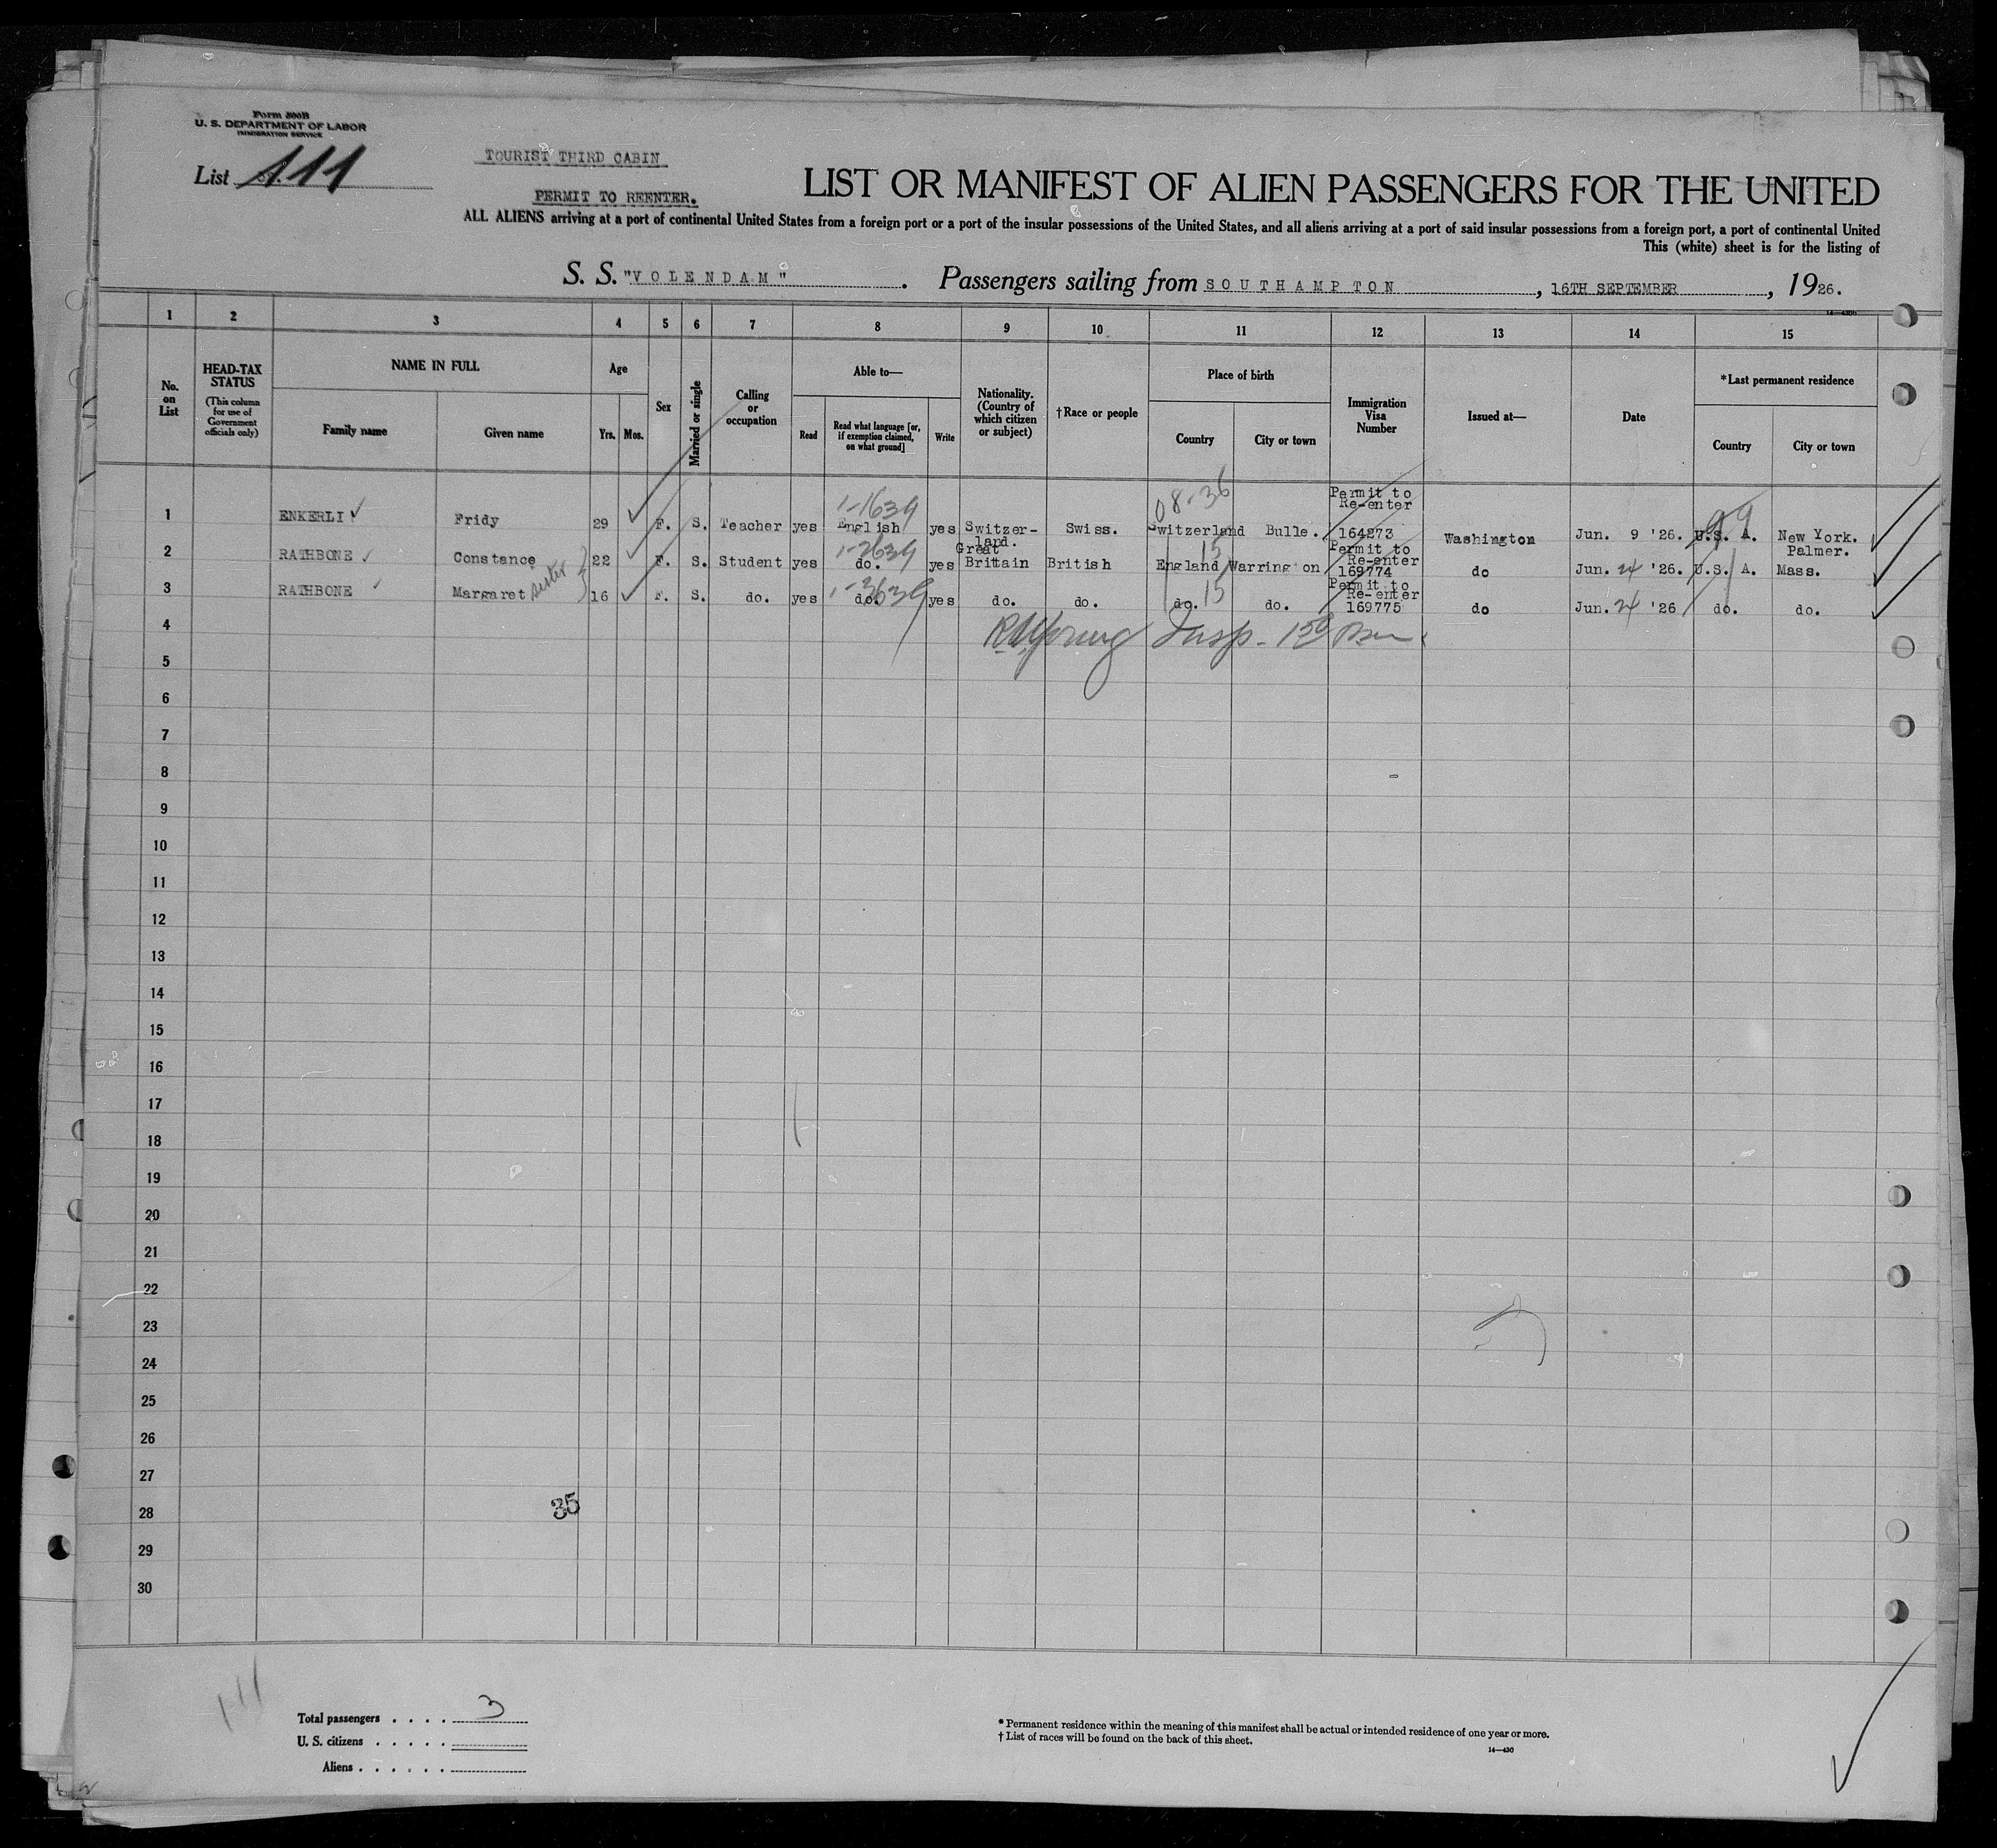 Form 500B
U. S. DEPARTMENT OF LABOR
IMMIGRATION SERVICE
List 111
TOURIST THIRD CABIN
PERMIT TO REENTER.
LIST OR MANIFEST OF ALIEN PASSENGERS FOR THE UNITED
ALL ALIENS arriving at a port of continental United States from a foreign port or a port of the insular possessions of the United States, and all aliens arriving at a port of said insular possessions from a foreign port, a port of continental United
This (white) sheet is for the listing of
S. S. "VOLENDAM" . Passengers sailing from SOUTHAMPTON , 16TH SEPTEMBER , 1926.
14—430b
1 2 3 4 5 6 7 8 9 10 11 12 13 14 15
No. on List
HEAD-TAX STATUS
(This column for use of Government officials only)
NAME IN FULL
Family name Given name
Age
Yrs. Mos.
Sex
Married or single
Calling or occupation
Able to—
Read
Read what language [or, if exemption claimed, on what ground]
Write
Nationality. (Country of which citizen or subject)
†Race or people
Place of birth
Country City or town
Immigration Visa Number
Issued at—
Date
*Last permanent residence
Country City or town
1-1634 08-36 Permit to Re-enter 99
1 ENKERLI Fridy 29 F. S. Teacher yes English yes Switzer-land. Swiss. Switzerland Bulle. 164273 Washington Jun. 9 '26. U.S. A. New York.
1-2634 15 Permit to Re-enter
2 RATHBONE Constance 22 F. S. Student yes do. yes Great Britain British England Warrington 169774 do Jun. 24 '26. U.S. A. Palmer. Mass.
sister 1-3634 15 Permit to Re-enter
3 RATHBONE Margaret 16 F. S. do. yes do. yes do. do. do. do. 169775 do Jun. 24 '26 do. do.
4 Young Insp.
5
6
7
8
9
10
11
12
13
14
15
16
17
18
19
20
21
22
23
24
25
26
27
28 35
29
30
111
Total passengers . . . . 3
U. S. citizens . . . . .
Aliens . . . . . .
* Permanent residence within the meaning of this manifest shall be actual or intended residence of one year or more.
† List of races will be found on the back of this sheet.
14—430